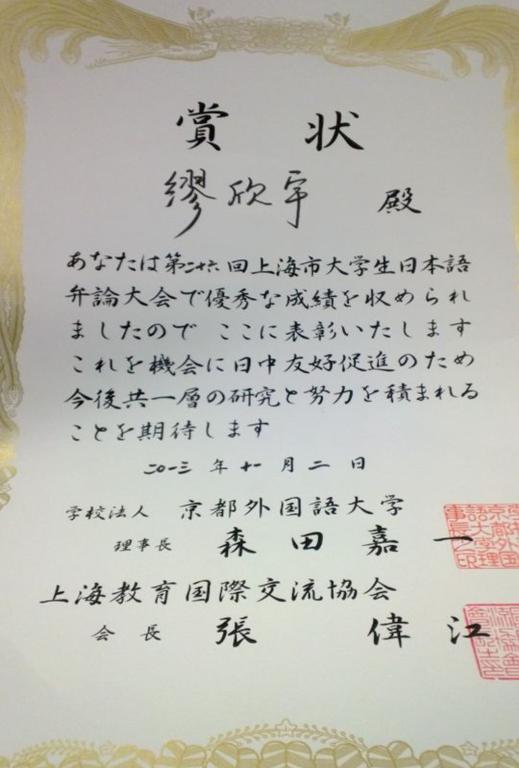 賞状
繆欣宇 殿
あなたは第二十六回上海市大学生日本語
弁論大会で優秀な成績を収められ
ましたので ここに表彰いたします
これを機会に日中友好促進のため
今後共一層の研究と努力を積まれる
ことを期待します
二〇一三年十一月二日
学校法人 京都外国語大学
理事長 森田嘉一
上海教育国際交流協会
会長 張偉江